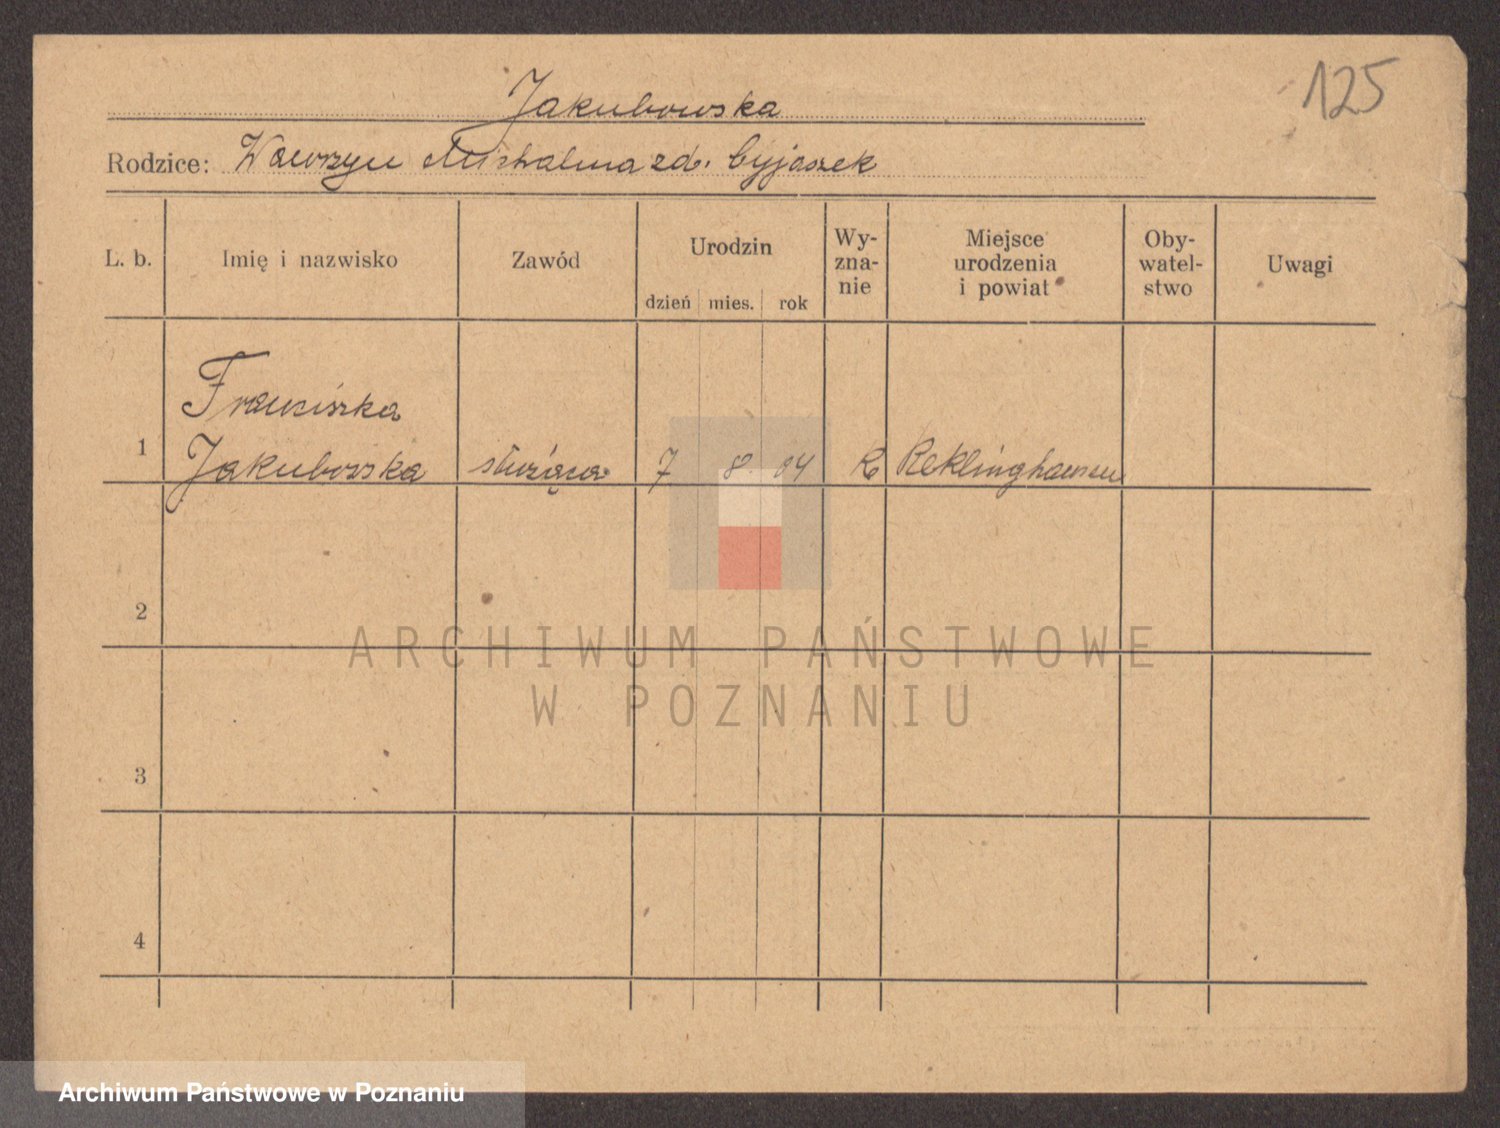 125
Jakubowska
Rodzice: Wawrzyn Michalina zd. Cyjaszek
L. b. Imię i nazwisko Zawód Urodzin dzień mies. rok Wy-zna-nie Miejsce urodzenia i powiat Oby-watel-stwo Uwagi
Franciszka
1 Jakubowska służąca 7 8 04 K Reklinghausen
2
ARCHIWUM PAŃSTWOWE
W POZNANIU
3
4
Archiwum Państwowe w Poznaniu